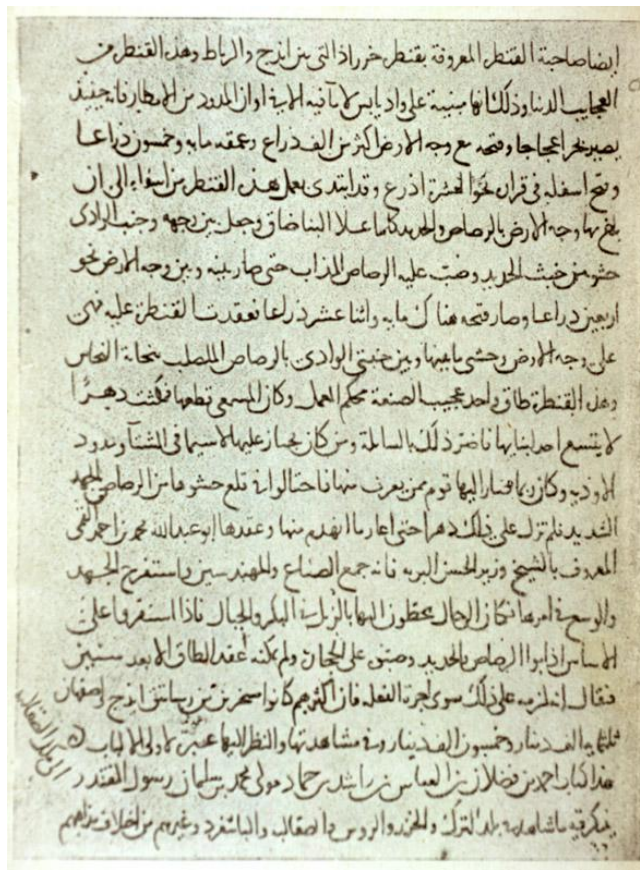 ايضا صاحبة القنطرة المعروفة بقنطرة خرراذ التى بين ايذج والرباط وهذه القنطرة من
العجايب الدنيا وذلك انها مبنية على واد يابس لا ماء فيه الا فى اوان المدود من الامطار فانه حينئذ
يصير بحرا عجاجا وفتحه مع وجه الارض اكثر من الف ذراع وعمقه مايه وخمسون ذراعا
وفتح اسفله فى قراره نحو العشرة اذرع وقد ابتدى بعمل هذه القنطرة من اسفلها الى ان
بلغ بها وجه الارض بالرصاص والحديد كلما علا البنا ضاق وجعل بين وجهه وجنب الوادى
حشو من خبث الحديد وصب عليه الرصاص المذاب حتى صار بينه وبين وجه الارض نحو
اربعين ذراعا وصار فتحه هناك مايه واثنا عشر ذراعا فعقدت القنطرة عليه فهى
على وجه الارض وحشى ما بينها وبين جنبتى الوادى بالرصاص المصلب بنحاتة النحاس
وهذه القنطرة طاق واحد عجيب الصنعة محكم العمل وكان المسمعى قطعها فمكثت دهرا
لا يتسع احد لبنايها فاضر ذلك بالسابلة ومن كان يجتاز عليها لا سيما فى الشتا ومدود
الاوديه وكان ربما صار اليها قوم ممن يقرب منها فاحتالوا فى قلع حشوها من الرصاص بالجهد
الشديد فلم تزل على ذلك دهرا حتى اعاد ما انهدم منها وعقدها ابو عبد الله محمد بن احمد القمى
المعروف بالشيخ وزير الحسن البويه فانه جمع الصناع والمهندسين واستفرغ الجهد
والوسع فى امرها فكان الرجال يحطون اليها بالزبل فى البكر والحبال فاذا استقروا على
الاساس اذابوا الرصاص بالحديد وصبوه على الحجارة ولم يمكنه عقد الطاق الا بعد سنين
فيقال انه لزمه على ذلك سوى اجرة الفعله فان اكثرهم كانوا مسخرين من رساتيق ايذج واصفهان
ثلثمايه الف دينار وخمسون الف دينار وفى مشاهدتها والنظر اليها عبرة لاولى الالباب
هذا كتاب احمد بن فضلان بن العباس بن راشد بن حماد مولى محمد بن سليمان رسول المقتدر
الى ملك الصقالبة
يذكر فيه ما شاهد فى بلد الترك والخزر والروس والصقالبه والباشغرد وغيرهم من اختلاف مذاهبهم